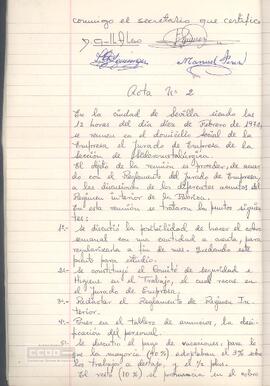 conmigo el secretario que certifico
Manuel
Acta Nº 2
En la ciudad de Sevilla siendo las
12 horas del dia diez de Febrero de 1972,
se reunen en el domicilio social de la
Empresa el Jurado de Empresa de la
Sección de Siderometalúrgica.
El objeto de la reunión es proceder, de acuer-
do con el Reglamento del Jurado de Empresa,
a las discusiones de los diferentes asuntos del
Regimen interior de la Fabrica.
En esta reunión se trataron los puntos siguien-
tes:
1º.- Se discutió la posibilidad de hacer el cobro
semanal con una cantidad a cuenta, para
regularizarla a fin de mes. Quedando este
punto para estudio.
2º.- Se constituyó el Comité de seguridad e
Higiene en el Trabajo, el cual recae en
el Jurado de Empresa.
3º.- Redactar el Reglamento de Regimen In-
terior.
4º.- Poner en el tablero de anuncios, la clasi-
ficación del personal.
5º.- Se discutió el pago de vacaciones, para lo
que la mayoria (90%) adoptaban el 3% sobre
los trabajos a destajo, y el ½ plus.
El resto (10%) se pronuncia en el cobro
CCOO